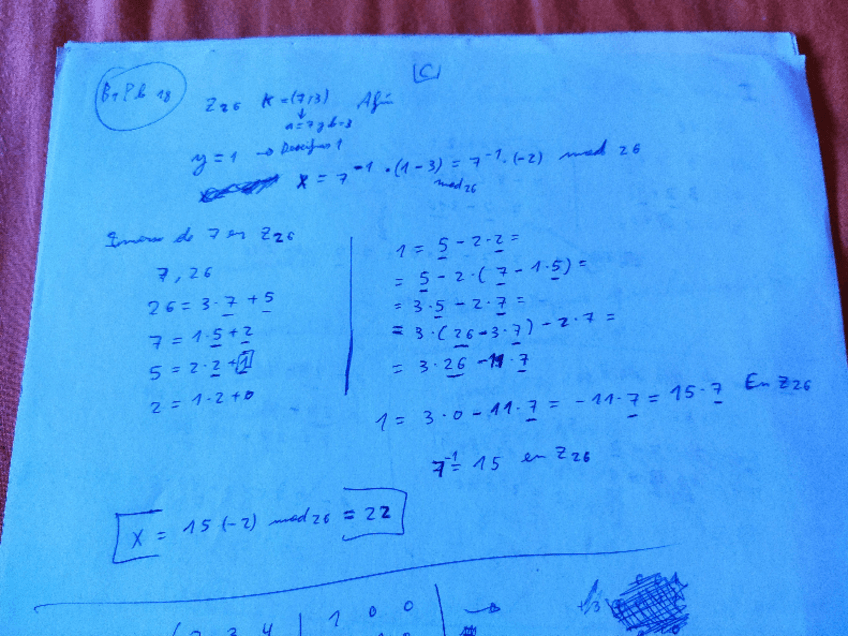 [C]
B1 Pb 18
Z26 K = (7,3) Afín
↓
a=7 y b=3
y = 1 → Descifrar 1
x = 7^-1 · (1-3) = 7^-1 · (-2) mod 26
mod 26
Inverso de 7 en Z26
7, 26
26 = 3·7 + 5
7 = 1·5 + 2
5 = 2·2 + 1
2 = 1·2 + 0
1 = 5 - 2·2 =
= 5 - 2·(7 - 1·5) =
= 3·5 - 2·7 =
= 3·(26 - 3·7) - 2·7 =
= 3·26 - 11·7
1 = 3·0 - 11·7 = -11·7 = 15·7 En Z26
7^-1 = 15 en Z26
X = 15(-2) mod 26 = 22
3 4 | 1 0 0 →
+3